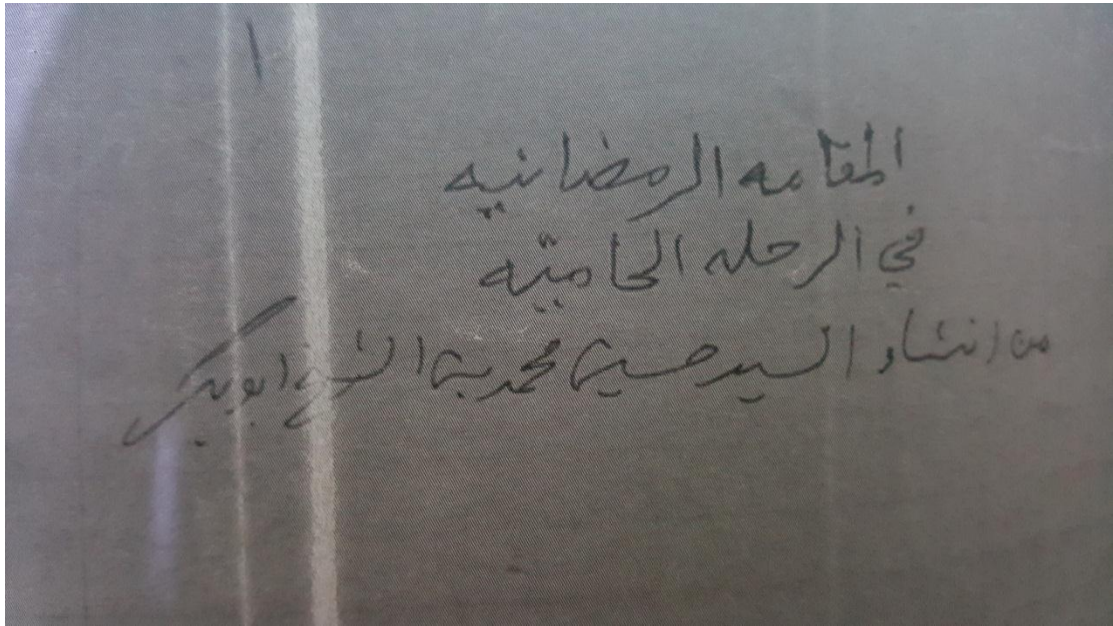 ١
المقامه الرمضانيه
في الرحله الحاميه
من انشاء السيد حسين محمد بن الشيخ ابوبكر